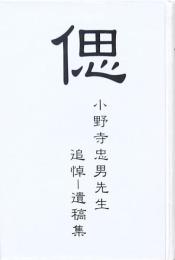 偲
小野寺忠男先生
追悼－遺稿集